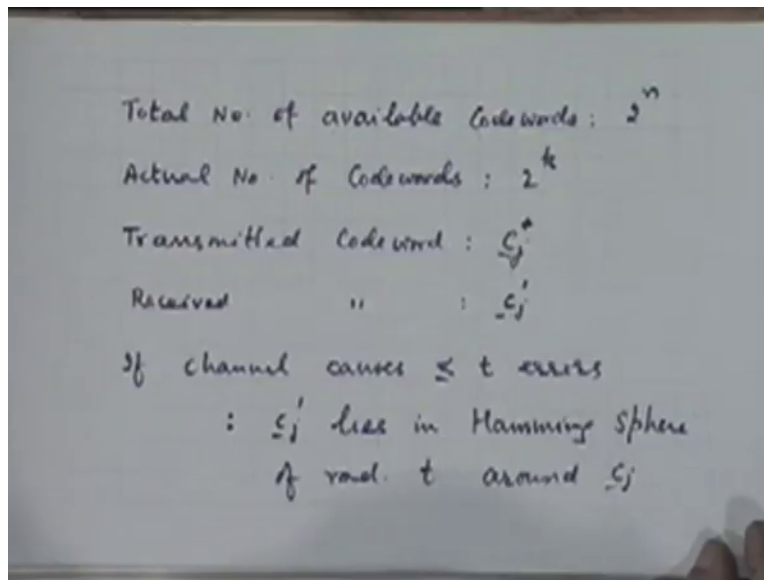 Total No. of available Codewords : 2^n
Actual No. of Codewords : 2^k
Transmitted Codeword : c_j
Received " : c_j'
If channel causes ≤ t errors
: c_j' lies in Hamming Sphere
of rad. t around c_j